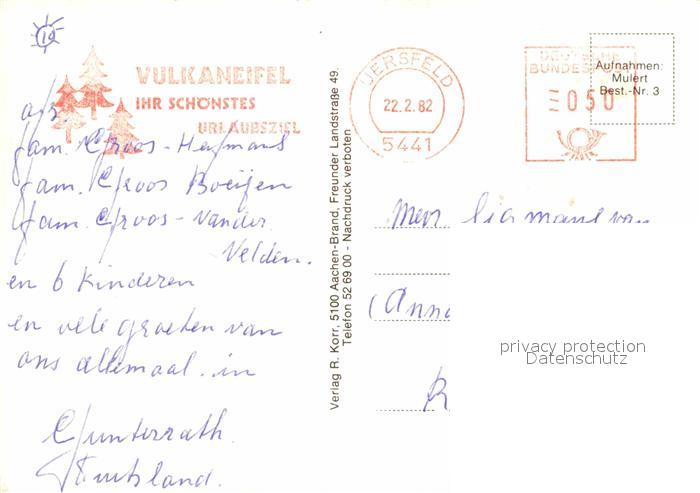 VULKANEIFEL
IHR SCHÖNSTES
URLAUBSZIEL
UERSFELD
22.2.82
5441
DEUTSCHE
BUNDESPOST
050
Aufnahmen:
Mulert
Best.-Nr. 3
fam. Croos - Hermans
fam. Croos Boeijen
fam. Croos - vander
Velden.
en 6 kinderen
en vele groeten van
ons allemaal. in
Gunterrath
Duitsland.
Verlag R. Korr, 5100 Aachen-Brand, Freunder Landstraße 49,
Telefon 52 69 00 - Nachdruck verboten
Mevr
(Anna
R
privacy protection
Datenschutz